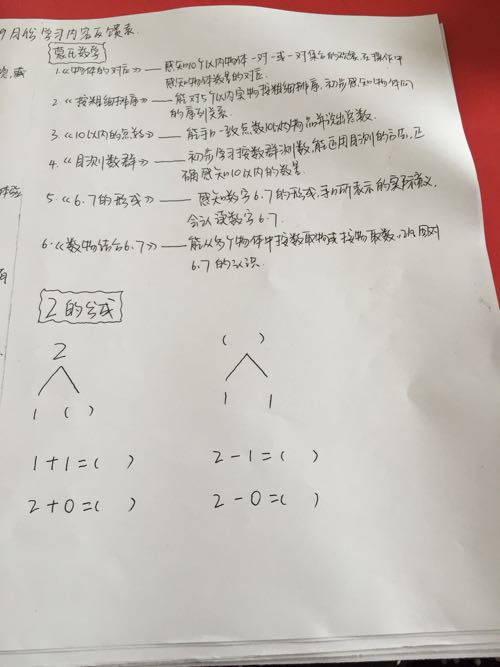 9月份学习内容反馈表.
蒙氏数学
1.《物体的对应》——感知10个以内物体一对一或一对集合的对应,在操作中
感知物体数量的对应.
2.《按粗细排序》——能对5个以内实物按粗细排序,初步感知物体间
的序列关系.
3.《10以内的点数》——能手口一致点数10以内物品并说出总数.
4.《目测数群》——初步学习按数群测数,能运用目测的方法,正
确感知10以内的数量.
5.《6.7的形成》——感知数字6.7的形成,和所表示的实际意义,
会认读数字6.7.
6.《数物结合6.7》——能从多个物体中按数取物或按物取数,巩固对
6.7的认识.
2的分成
2 ( )
1 ( ) 1 1
1+1=( ) 2-1=( )
2+0=( ) 2-0=( )